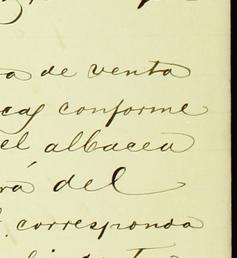 a de venta
cas conforme
el albacea
rá del
corresponda